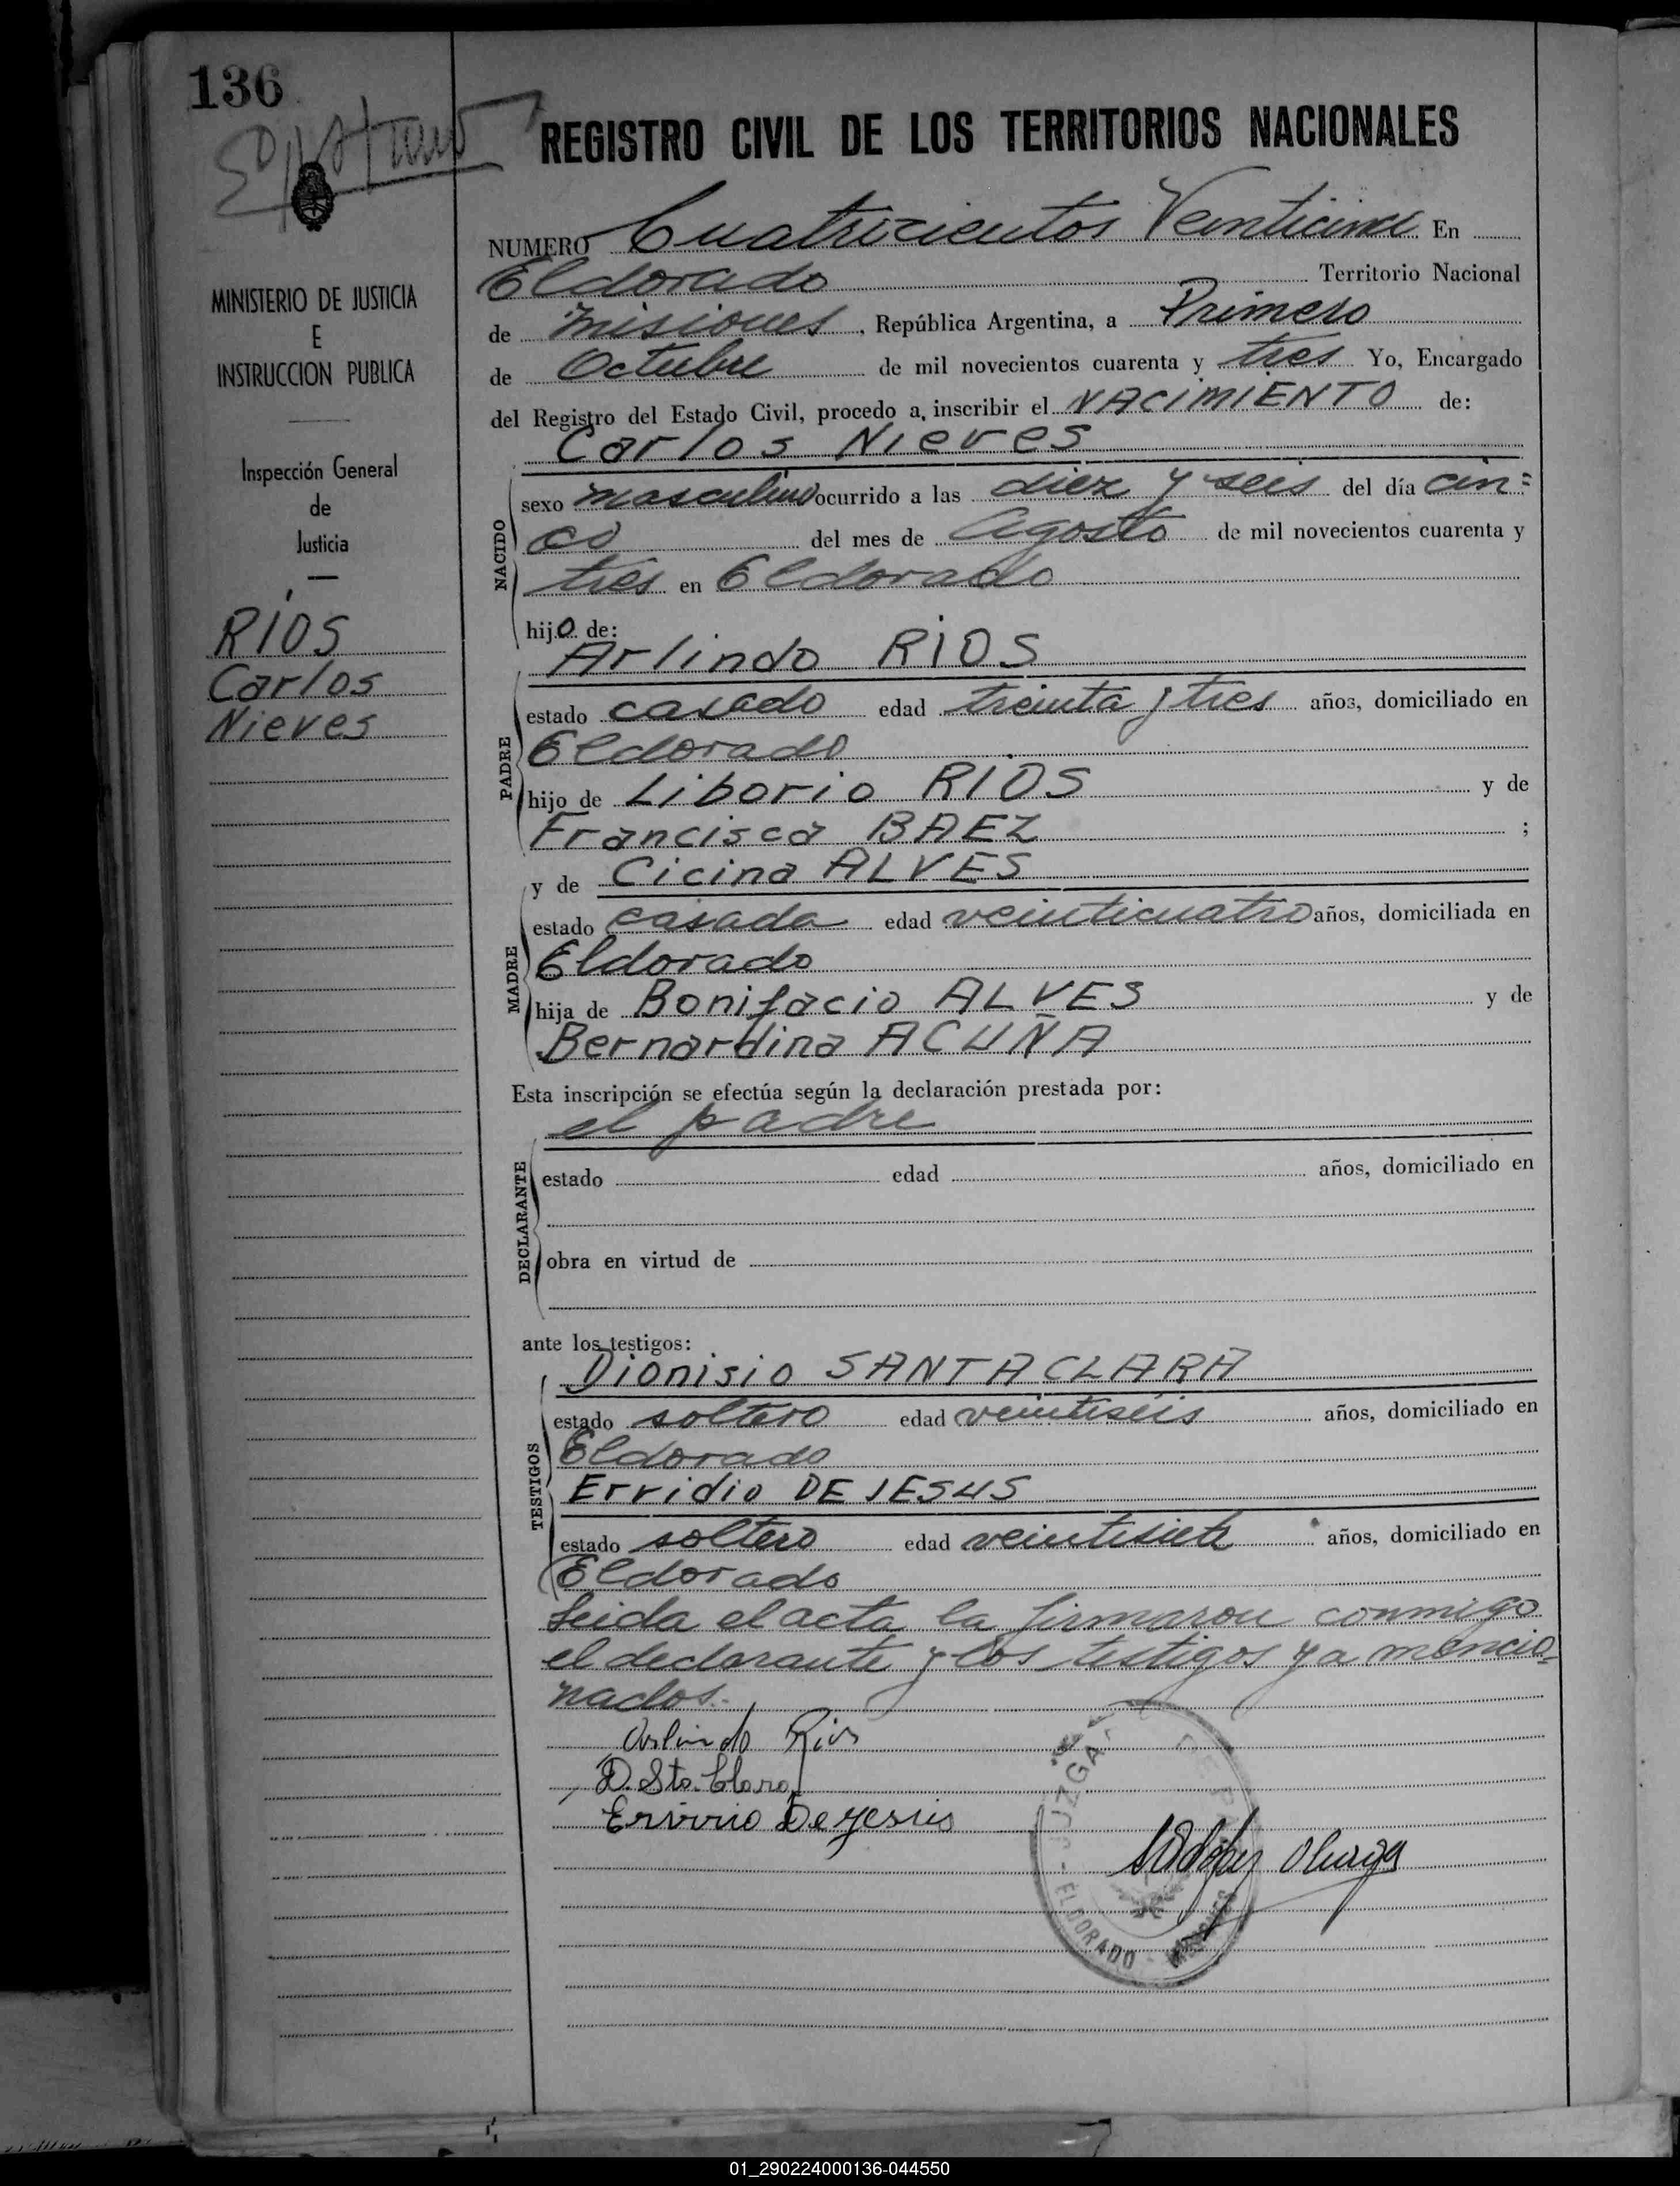 136
REGISTRO CIVIL DE LOS TERRITORIOS NACIONALES
MINISTERIO DE JUSTICIA
E
INSTRUCCION PUBLICA
Inspección General
de
Justicia
RÍOS
Carlos
Nieves
NUMERO Cuatrocientos Veinticinco En
Eldorado Territorio Nacional
de Misiones, República Argentina, a Primero
de Octubre de mil novecientos cuarenta y tres Yo, Encargado
del Registro del Estado Civil, procedo a inscribir el NACIMIENTO de:
Carlos Nieves
NACIDO
sexo masculino ocurrido a las diez y seis del día cin=
co del mes de Agosto de mil novecientos cuarenta y
tres en Eldorado
hijo de:
Arlindo RÍOS
PADRE
estado casado edad treinta y tres años, domiciliado en
Eldorado
hijo de Liborio RÍOS y de
Francisca BAEZ ;
y de Cicina ALVES
MADRE
estado casada edad veinticuatro años, domiciliada en
Eldorado
hija de Bonifacio ALVES y de
Bernardina ACUÑA
Esta inscripción se efectúa según la declaración prestada por:
el padre
DECLARANTE
estado edad años, domiciliado en
obra en virtud de
ante los testigos:
Dionisio SANTA CLARA
TESTIGOS
estado soltero edad veintiséis años, domiciliado en
Eldorado
Ervidio DE JESUS
estado soltero edad veintisiete años, domiciliado en
Eldorado
Leida el acta la firmaron conmigo
el declarante y los testigos ya mencio=
nados.
Arlindo Rios
D. Sta. Clara
Ervirio De Jesus
JUZGA
ELDORADO - MISIONES
01_290224000136-044550